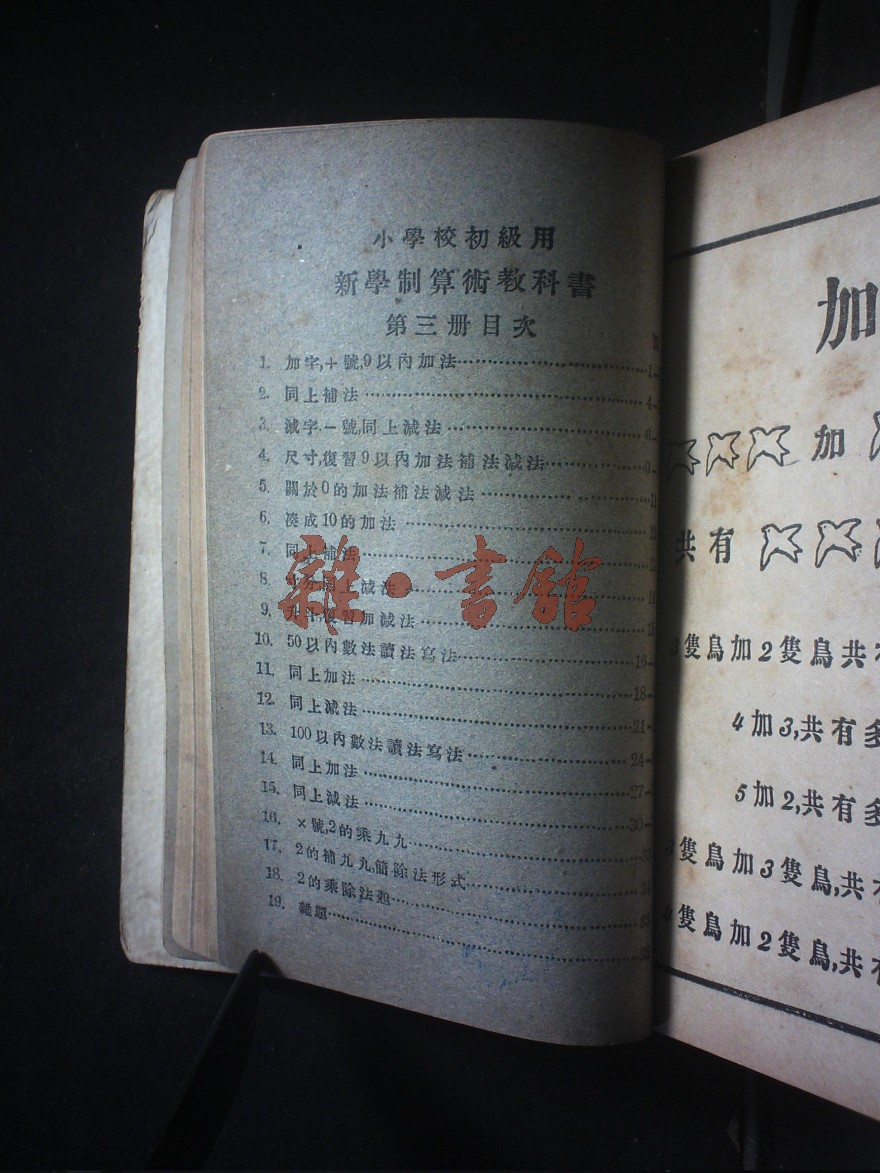 小學校初級用
新學制算術教科書
第三册目次
1. 加字,＋號,9以內加法……1—
2. 同上補法……4—
3. 減字,－號,同上減法……6—
4. 尺寸,復習9以內加法補法減法……9—
5. 關於0的加法補法減法……11
6. 湊成10的加法……
7. 同上補法……
8. 同上減法……
9. 復習加減法……
10. 50以內數法讀法寫法……16—
11. 同上加法……18—
12. 同上減法……21—
13. 100以內數法讀法寫法……24—
14. 同上加法……27—
15. 同上減法……30—
16. ×號,2的乘九九……33
17. 2的補九九,簡除法形式……34
18. 2的乘除法題……35
19. 雜題……36
雜·書舘
加
加
共有
3隻鳥加2隻鳥共有
4加3,共有多
5加2,共有多
隻鳥加3隻鳥,共有
隻鳥加2隻鳥,共有